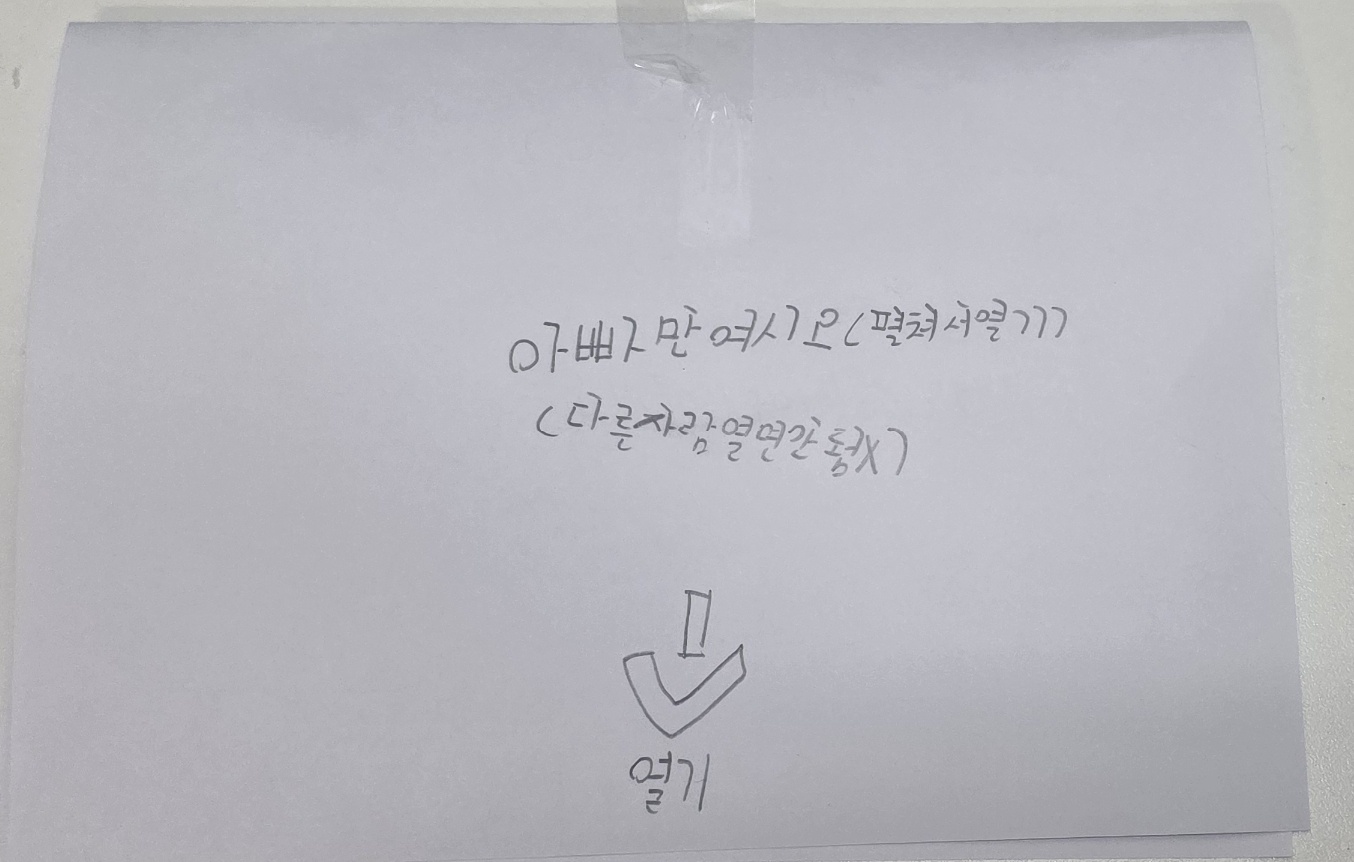 아빠만 여시오(펼쳐서열기)
(다른사람열면안됨X)
열기